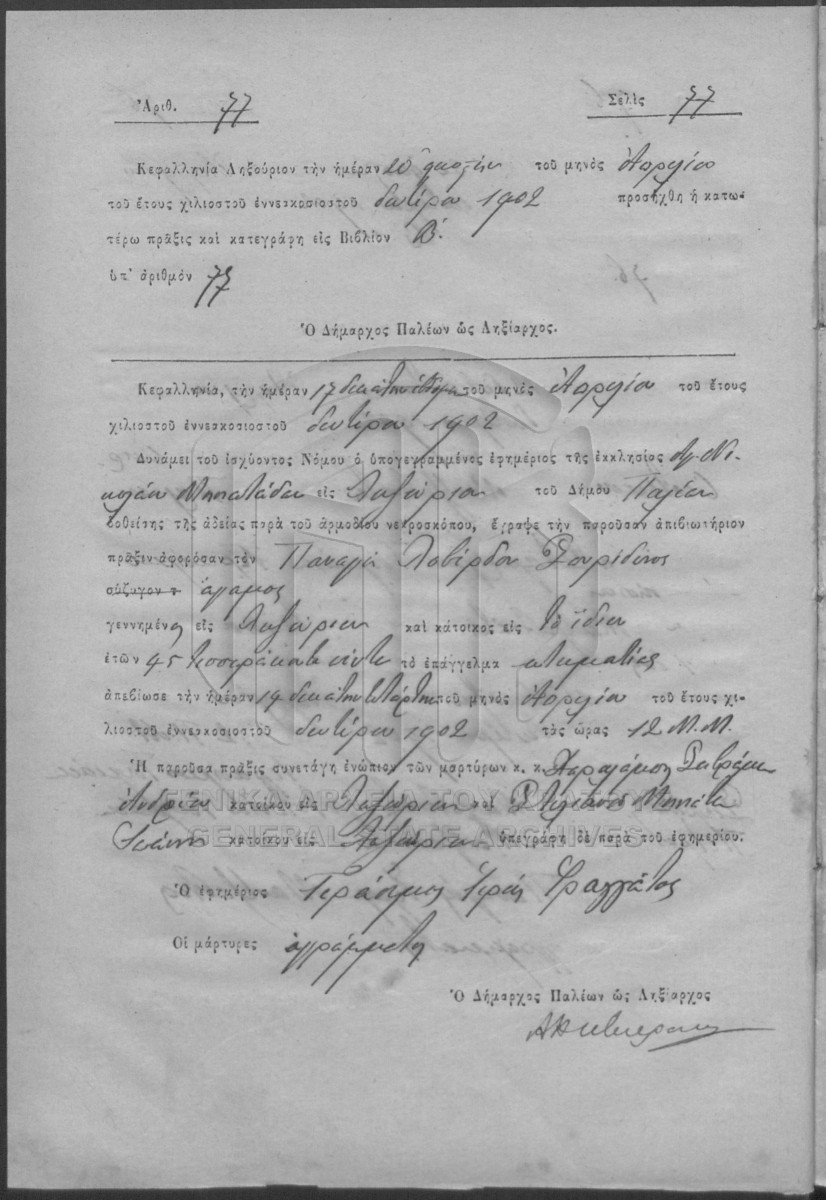 Ἀριθ. 77
Σελὶς 77
Κεφαλληνία Ληξούριον τὴν ἡμέραν 20 εἰκοστὴν τοῦ μηνὸς Ἀπριλίου
τοῦ ἔτους χιλιοστοῦ ἐννεακοσιοστοῦ δευτέρου 1902 προσήχθη ἡ κατω-
τέρω πρᾶξις καὶ κατεγράφη εἰς Βιβλίον Β΄.
ὑπ' ἀριθμὸν 77
Ὁ Δήμαρχος Παλέων ὡς Ληξίαρχος.
Κεφαλληνία, τὴν ἡμέραν 17 δεκάτην ἑβδόμην τοῦ μηνὸς Ἀπριλίου τοῦ ἔτους
χιλιοστοῦ ἐννεακοσιοστοῦ δευτέρου 1902
Δυνάμει τοῦ ἰσχύοντος Νόμου ὁ ὑπογεγραμμένος ἐφημέριος τῆς ἐκκλησίας Ἁγ. Νι-
κολάου Μηνιατάδων εἰς Ληξούριον τοῦ Δήμου Παλέων
δοθείσης τῆς ἀδείας παρὰ τοῦ ἁρμοδίου νεκροσκόπου, ἔγραψε τὴν παροῦσαν ἀπιβιωτήριον
πρᾶξιν ἀφορῶσαν τὸν Παναγῆ Λοβέρδον Σπυρίδωνος
σύζυγον τ ἄγαμος
γεννημένο εἰς Ληξούριον καὶ κάτοικος εἰς τὸ ἴδιον
ἐτῶν 45 τεσσαράκοντα πέντε τὸ ἐπάγγελμα κτηματίας
ἀπεβίωσε τὴν ἡμέραν 14 δεκάτην τετάρτην τοῦ μηνὸς Ἀπριλίου τοῦ ἔτους χι-
λιοστοῦ ἐννεακοσιοστοῦ δευτέρου 1902 τὰς ὥρας 12 Μ.Μ.
Ἡ παροῦσα πρᾶξις συνετάγη ἐνώπιον τῶν μαρτύρων κ. κ. Χαραλάμπη
Ἀνδρέου κατοίκου εἰς Ληξούριον καὶ Στυλιανοῦ Μηνιάτη
Ἰωάννη κατοίκου εἰς Ληξούριον ὑπεγράφη δὲ παρὰ τοῦ ἐφημερίου.
ΓΕΝΙΚΑ ΑΡΧΕΙΑ ΤΟΥ ΚΡΑΤΟΥΣ
GENERAL STATE ARCHIVES
Ὁ ἐφημέριος Γεράσιμος Ἱερεὺς Φραγγάτος
Οἱ μάρτυρες ἀγράμματοι
Ὁ Δήμαρχος Παλέων ὡς Ληξίαρχος